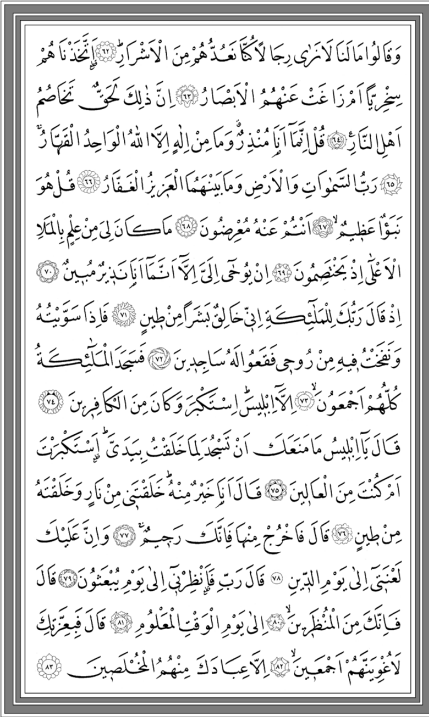 وَقَالُوا مَا لَنَا لَا نَرٰى رِجَالًا كُنَّا نَعُدُّهُمْ مِنَ الْاَشْرَارِۜ ﴿٦٢﴾ اَتَّخَذْنَاهُمْ
سِخْرِيًّا اَمْ زَاغَتْ عَنْهُمُ الْاَبْصَارُ ﴿٦٣﴾ اِنَّ ذٰلِكَ لَحَقٌّ تَخَاصُمُ
اَهْلِ النَّارِ۟ ﴿٦٤﴾ قُلْ اِنَّمَٓا اَنَا۬ مُنْذِرٌۗ وَمَا مِنْ اِلٰهٍ اِلَّا اللّٰهُ الْوَاحِدُ الْقَهَّارُۚ
﴿٦٥﴾ رَبُّ السَّمٰوَاتِ وَالْاَرْضِ وَمَا بَيْنَهُمَا الْعَزٖيزُ الْغَفَّارُ ﴿٦٦﴾ قُلْ هُوَ
نَبَؤٌ۬ا عَظٖيمٌۙ ﴿٦٧﴾ اَنْتُمْ عَنْهُ مُعْرِضُونَ ﴿٦٨﴾ مَا كَانَ لِيَ مِنْ عِلْمٍ بِالْمَلَاِ
الْاَعْلٰٓى اِذْ يَخْتَصِمُونَ ﴿٦٩﴾ اِنْ يُوحٰٓى اِلَيَّ اِلَّٓا اَنَّمَٓا اَنَا۬ نَذٖيرٌ مُبٖينٌ ﴿٧٠﴾
اِذْ قَالَ رَبُّكَ لِلْمَلٰٓئِكَةِ اِنّٖي خَالِقٌ بَشَرًا مِنْ طٖينٍ ﴿٧١﴾ فَاِذَا سَوَّيْتُهُ
وَنَفَخْتُ فٖيهِ مِنْ رُوحٖي فَقَعُوا لَهُ سَاجِدٖينَ ﴿٧٢﴾ فَسَجَدَ الْمَلٰٓئِكَةُ
كُلُّهُمْ اَجْمَعُونَۙ ﴿٧٣﴾ اِلَّٓا اِبْلٖيسَۜ اِسْتَكْبَرَ وَكَانَ مِنَ الْكَافِرٖينَ ﴿٧٤﴾
قَالَ يَٓا اِبْلٖيسُ مَا مَنَعَكَ اَنْ تَسْجُدَ لِمَا خَلَقْتُ بِيَدَيَّۜ اَسْتَكْبَرْتَ
اَمْ كُنْتَ مِنَ الْعَالٖينَ ﴿٧٥﴾ قَالَ اَنَا۬ خَيْرٌ مِنْهُۜ خَلَقْتَنٖي مِنْ نَارٍ وَخَلَقْتَهُ
مِنْ طٖينٍ ﴿٧٦﴾ قَالَ فَاخْرُجْ مِنْهَا فَاِنَّكَ رَجٖيمٌۚ ﴿٧٧﴾ وَاِنَّ عَلَيْكَ
لَعْنَتٖٓي اِلٰى يَوْمِ الدّٖينِ ﴿٧٨﴾ قَالَ رَبِّ فَاَنْظِرْنٖٓي اِلٰى يَوْمِ يُبْعَثُونَ ﴿٧٩﴾ قَالَ
فَاِنَّكَ مِنَ الْمُنْظَرٖينَۙ ﴿٨٠﴾ اِلٰى يَوْمِ الْوَقْتِ الْمَعْلُومِ ﴿٨١﴾ قَالَ فَبِعِزَّتِكَ
لَاُغْوِيَنَّهُمْ اَجْمَعٖينَۙ ﴿٨٢﴾ اِلَّا عِبَادَكَ مِنْهُمُ الْمُخْلَصٖينَ ﴿٨٣﴾